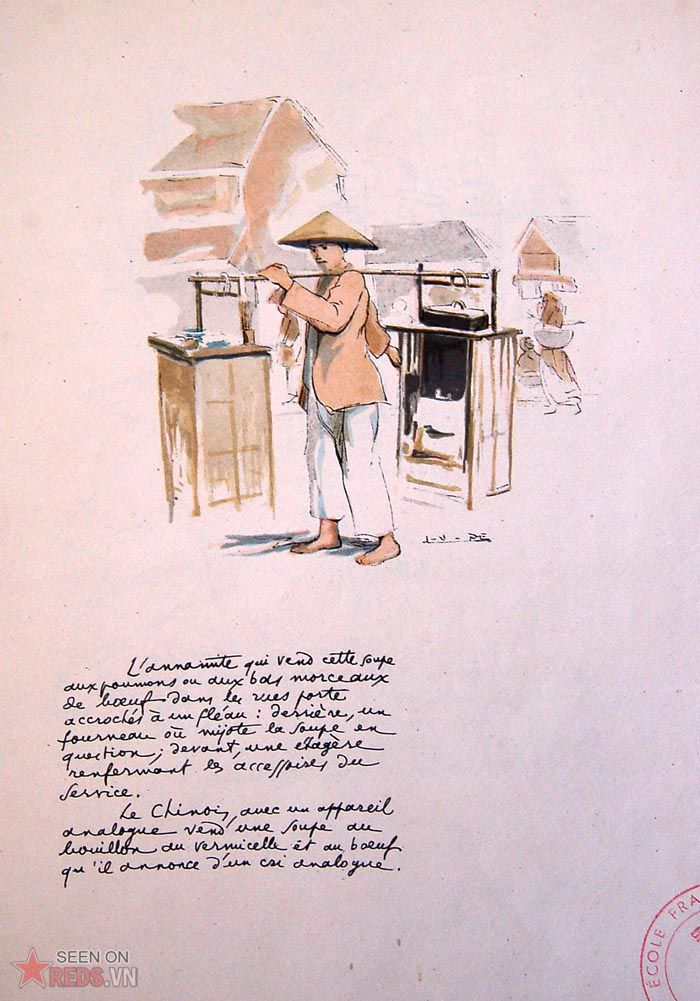 L-V-PÉ
L'annamite qui vend cette soupe
aux poumons ou aux bas morceaux
de bœuf dans les rues porte
accrochés à un fléau : derrière, un
fourneau où mijote la soupe en
question ; devant, une étagère
renfermant les accessoires du
service.
Le Chinois, avec un appareil
analogue vend une soupe au
bouillon au vermicelle et au bœuf
qu'il annonce d'un cri analogue.
ÉCOLE FRA
SEEN ON
REDS.VN